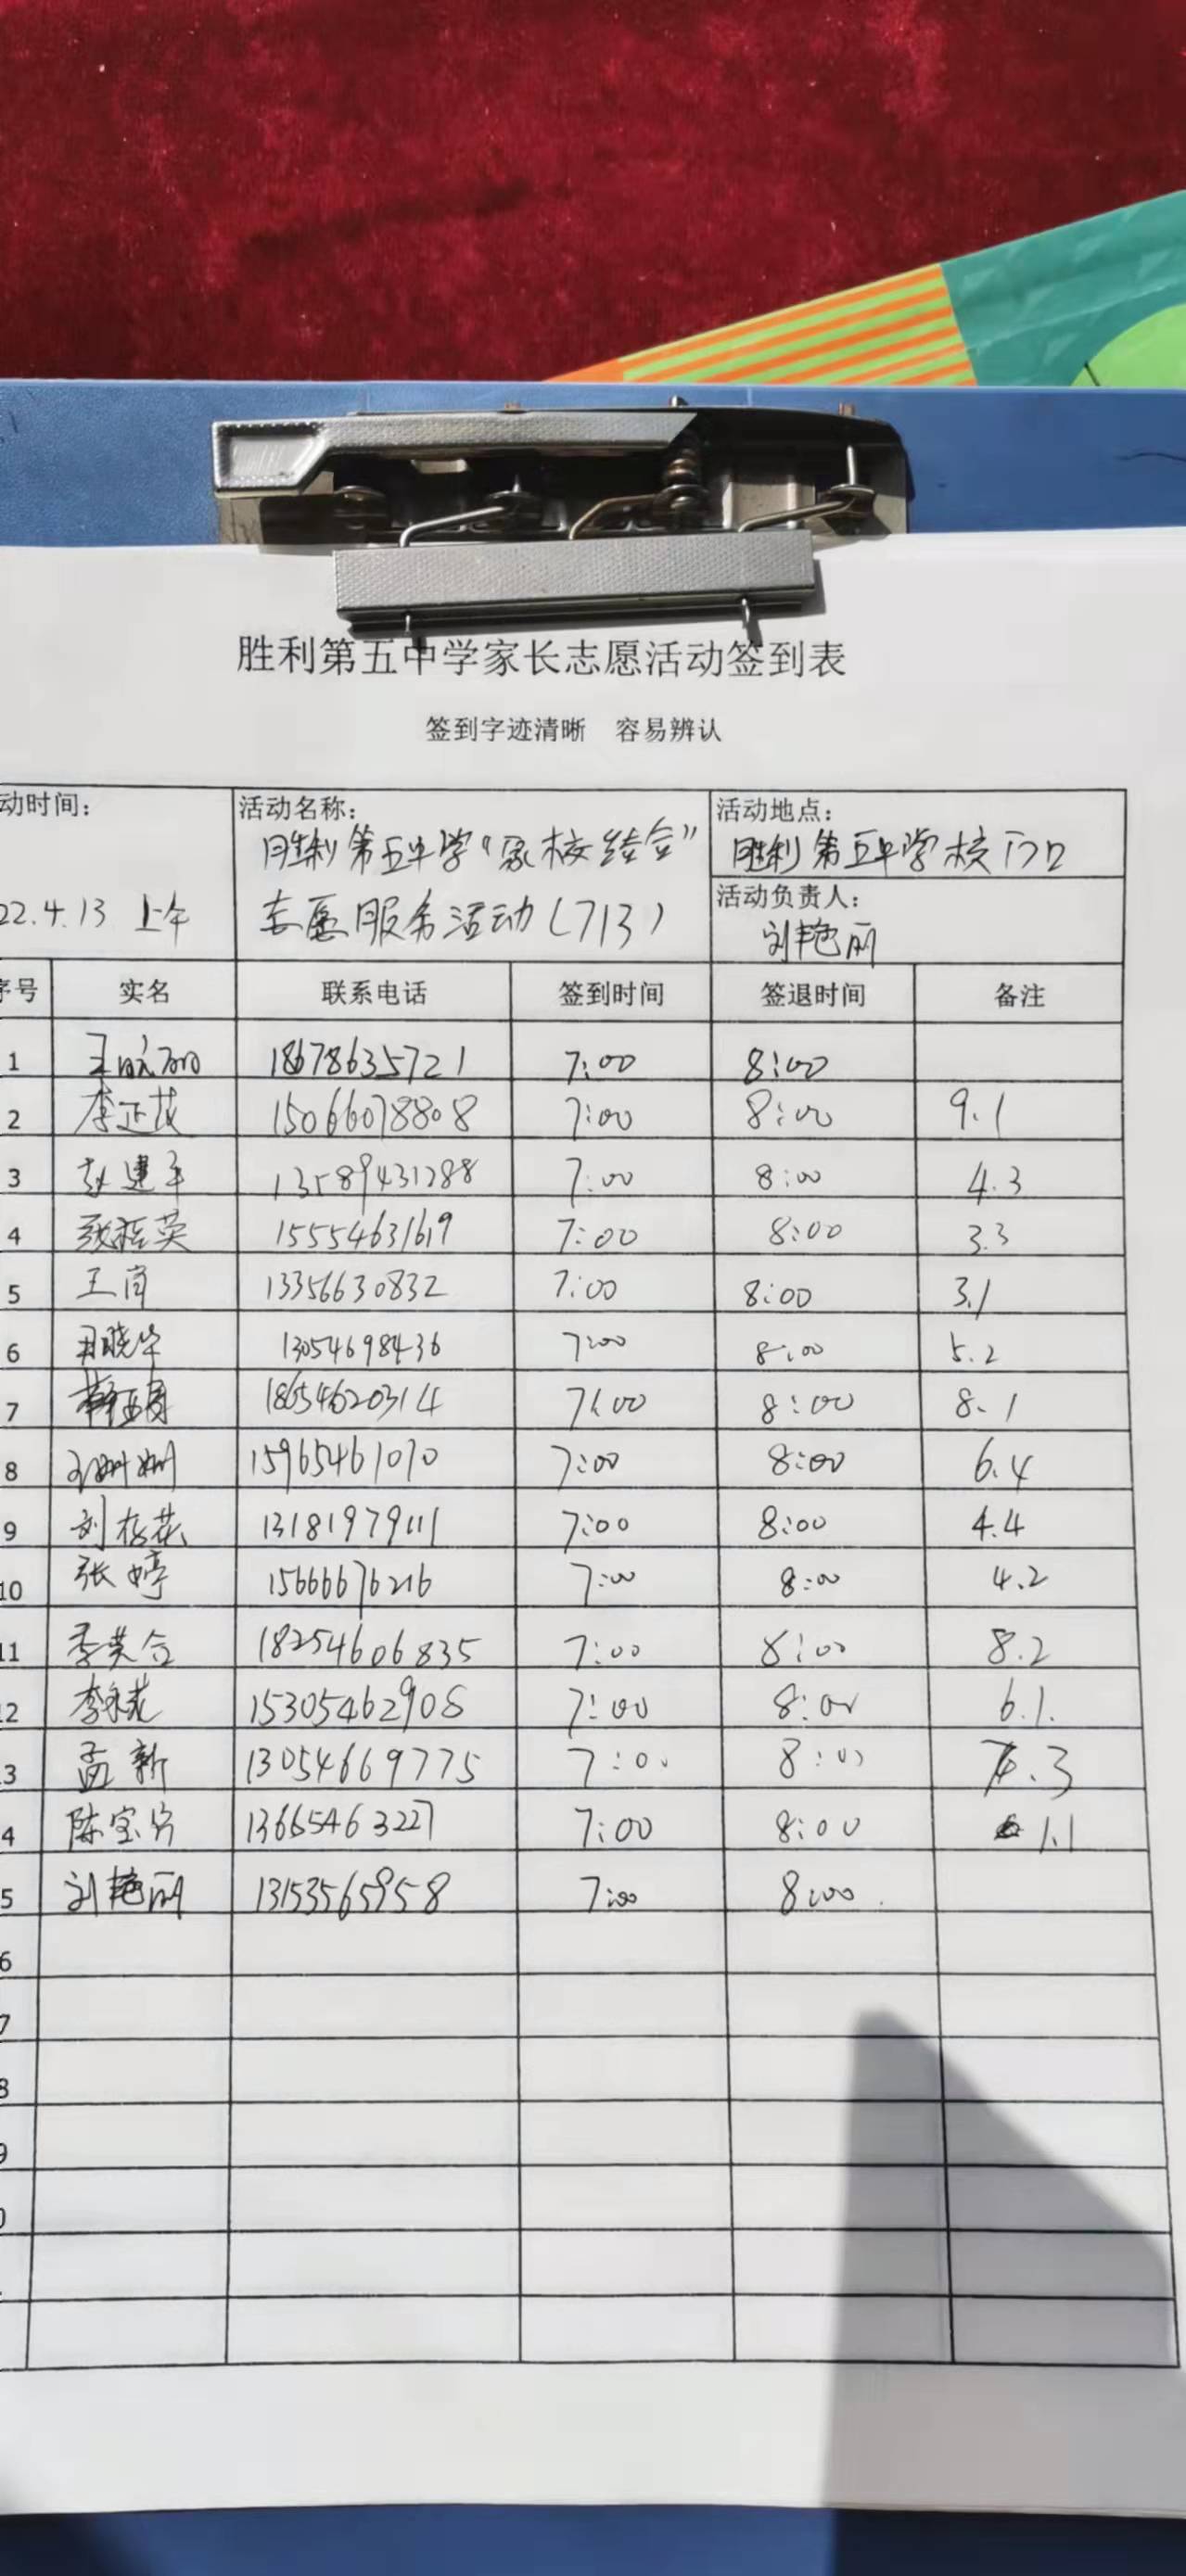 胜利第五中学家长志愿活动签到表
签到字迹清晰 容易辨认
动时间: 活动名称: 活动地点:
胜利第五中学“家校结合” 胜利第五中学校门口
活动负责人:
22.4.13 上午 志愿服务活动(713) 刘艳丽
序号 实名 联系电话 签到时间 签退时间 备注
1 18678635721 7:00 8:00
2 李正茂 15066078808 7:00 8:00 9.1
3 赵建平 13589431288 7:00 8:00 4.3
4 张桂英 15554631619 7:00 8:00 3.3
5 王肖 13356630832 7:00 8:00 3.1
6 晓华 13054698436 7:00 8:00 5.2
7 18654620314 7:00 8:00 8.1
8 15965461070 7:00 8:00 6.4
9 刘桂花 13181979111 7:00 8:00 4.4
10 张婷 15666676216 7:00 8:00 4.2
11 李英合 18254606835 7:00 8:00 8.2
2 15305462908 7:00 8:00 6.1.
3 孟新 13054669775 7:00 8:00 7.3
4 陈宝 13665463227 7:00 8:00 1.1
5 刘艳丽 13153565958 7:00 8:00
6
7
8
9
0